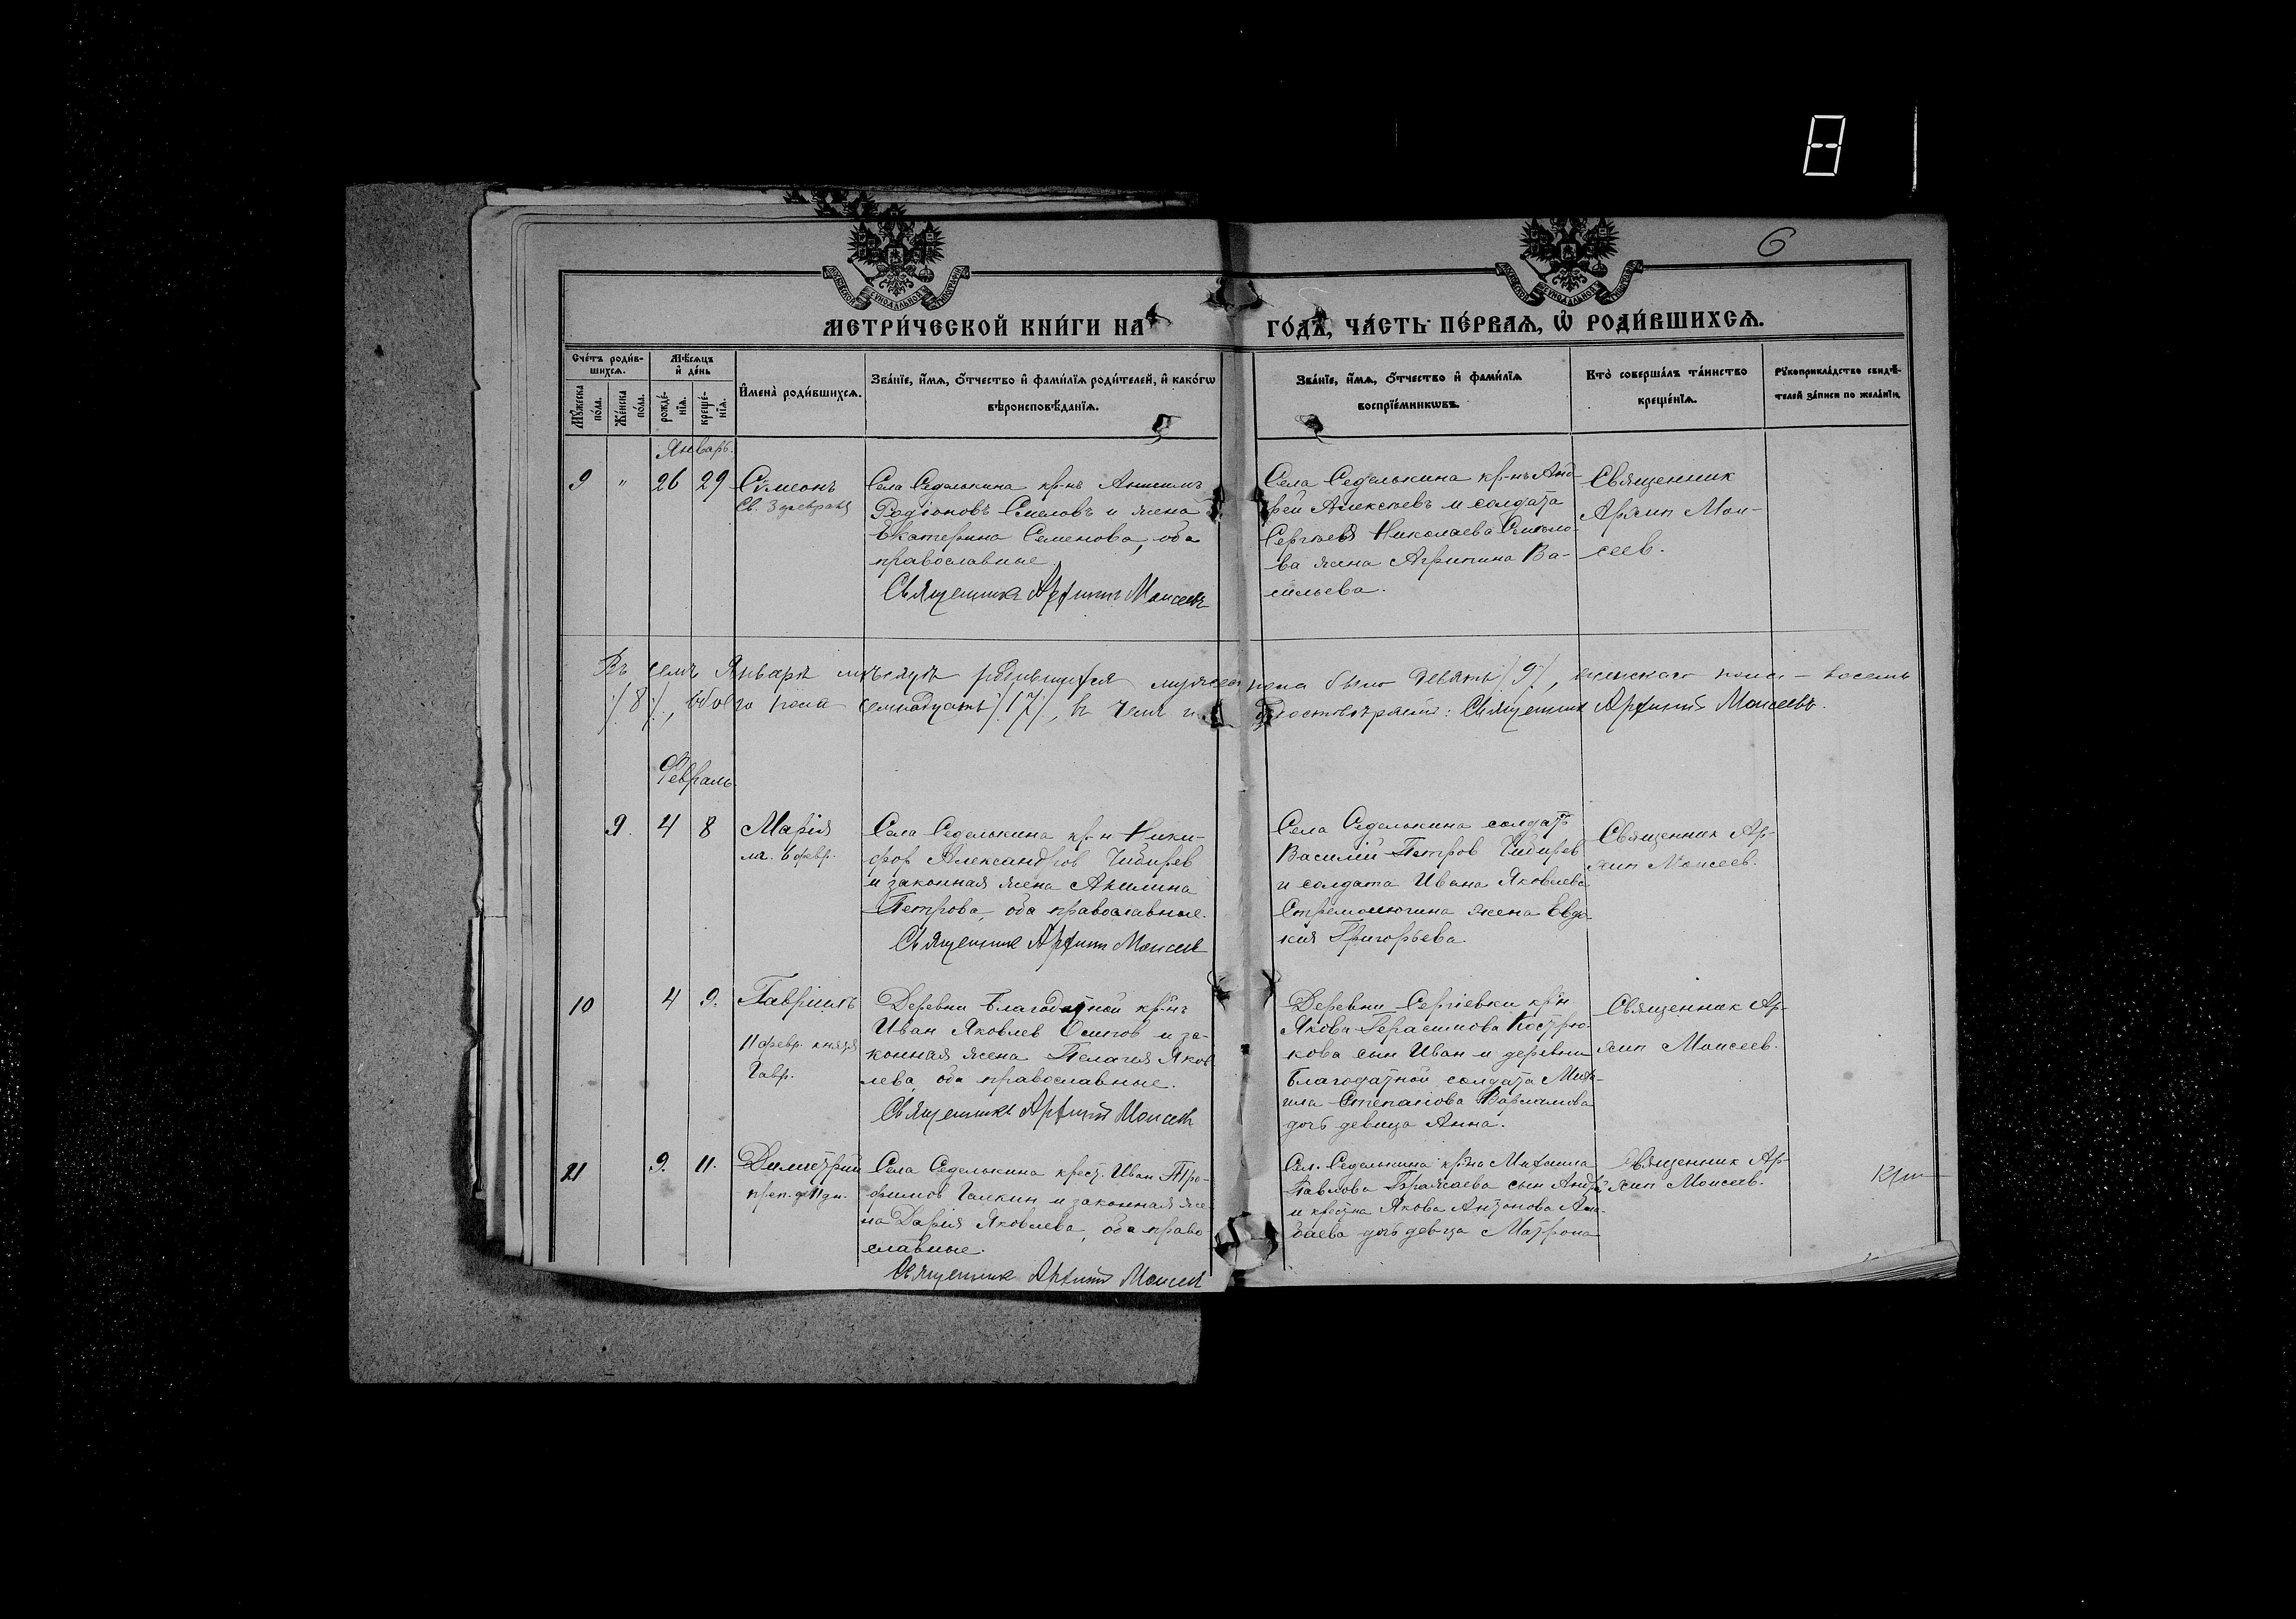 6
МЕТРИ́ЧЕСКОЙ КНИ́ГИ НА ГО́ДЪ, ЧА́СТЬ ПЕ́РВАѦ, Ѡ РОДИ́ВШИХСѦ.
Сче́тъ роди́в-
шихсѧ.
Мꙋ́жеска по́ла.
Же́нска по́ла.
Мѣ́сѧцъ
и де́нь
рожде́-
нїѧ.
креще́-
нїѧ.
И҆мена̀ роди́вшихсѧ.
Зва́нїе, и҆́мѧ, ѻ҆́тчество и҆ фами́лїѧ роди́телей, и҆ како́гѡ
вѣроисповѣ́данїѧ.
Зва́нїе, и҆́мѧ, ѻ҆́тчество и҆ фами́лїѧ
воспрїе́мникѡвъ.
Кто̀ соверша́лъ та́инство
креще́нїѧ.
Рꙋкоприкла́дство свидѣ́-
телей за́писи по жела́нїю.
Январь.
9 " 26 29
Сѵмеонъ
Св. 3 февраля
Села Седелькина кр-нъ Анисимъ
Родіоновъ Смеловъ и жена
Екатерина Семенова, оба
православные
Священникъ Архиппъ Моисеевъ
Села Седелькина кр-нъ Анд-
рей Алексеевъ и солдата
Сергѣя Николаева Смело-
ва жена Агрипина Ва-
сильева.
Священник
Архип Мои-
сеев.
Въ семъ Январѣ мѣсяцѣ родившихся мужска пола было девять /9/, женскаго пола – восемь
/8/, обоего пола семнадцать /17/, въ чемъ и удостовѣряемъ: Священникъ Архиппъ Моисеевъ.
Февраль.
9. 4 8
Марія
мч. 6 февр.
Села Седелькина кр-н Ники-
фор Александров Чибирев
и законная жена Акилина
Петрова, оба православные.
Священникъ Архиппъ Моисеев
Села Седелькина солдатъ
Василий Петров Чибирев
и солдата Ивана Яковлева
жена Евдо-
кия Григорьева.
Священник Ар-
хип Моисеев.
10 4 9.
Гавріилъ
11 февр. князя
Гавр.
Деревни Благодатной кр-нъ
Иван Яковлев Осипов и за-
конная жена Пелагея Яков
лева, оба православные.
Священникъ Архиппъ Моисеев
Деревни Сергіевки кр-н
Якова Герасимова Костро-
кова сын Иван и деревни
Благодатной солдата Миха-
ила Степанова Варламова
дочь девица Анна.
Священник Ар-
хип Моисеев.
11 9. 11.
Димитрий
преп. 11 дн.
Села Седелькина крест. Иван Тро-
фимов Галкин и законная же-
на Дарія Яковлева, оба право
славные.
Священник Архиппъ Моисеев
Сел. Седелькина кр-на Михаила
Павлова сын Андрей
и крест-на Якова Антонова
дочь девица Матрона
Священник Ар-
хип Моисеев.